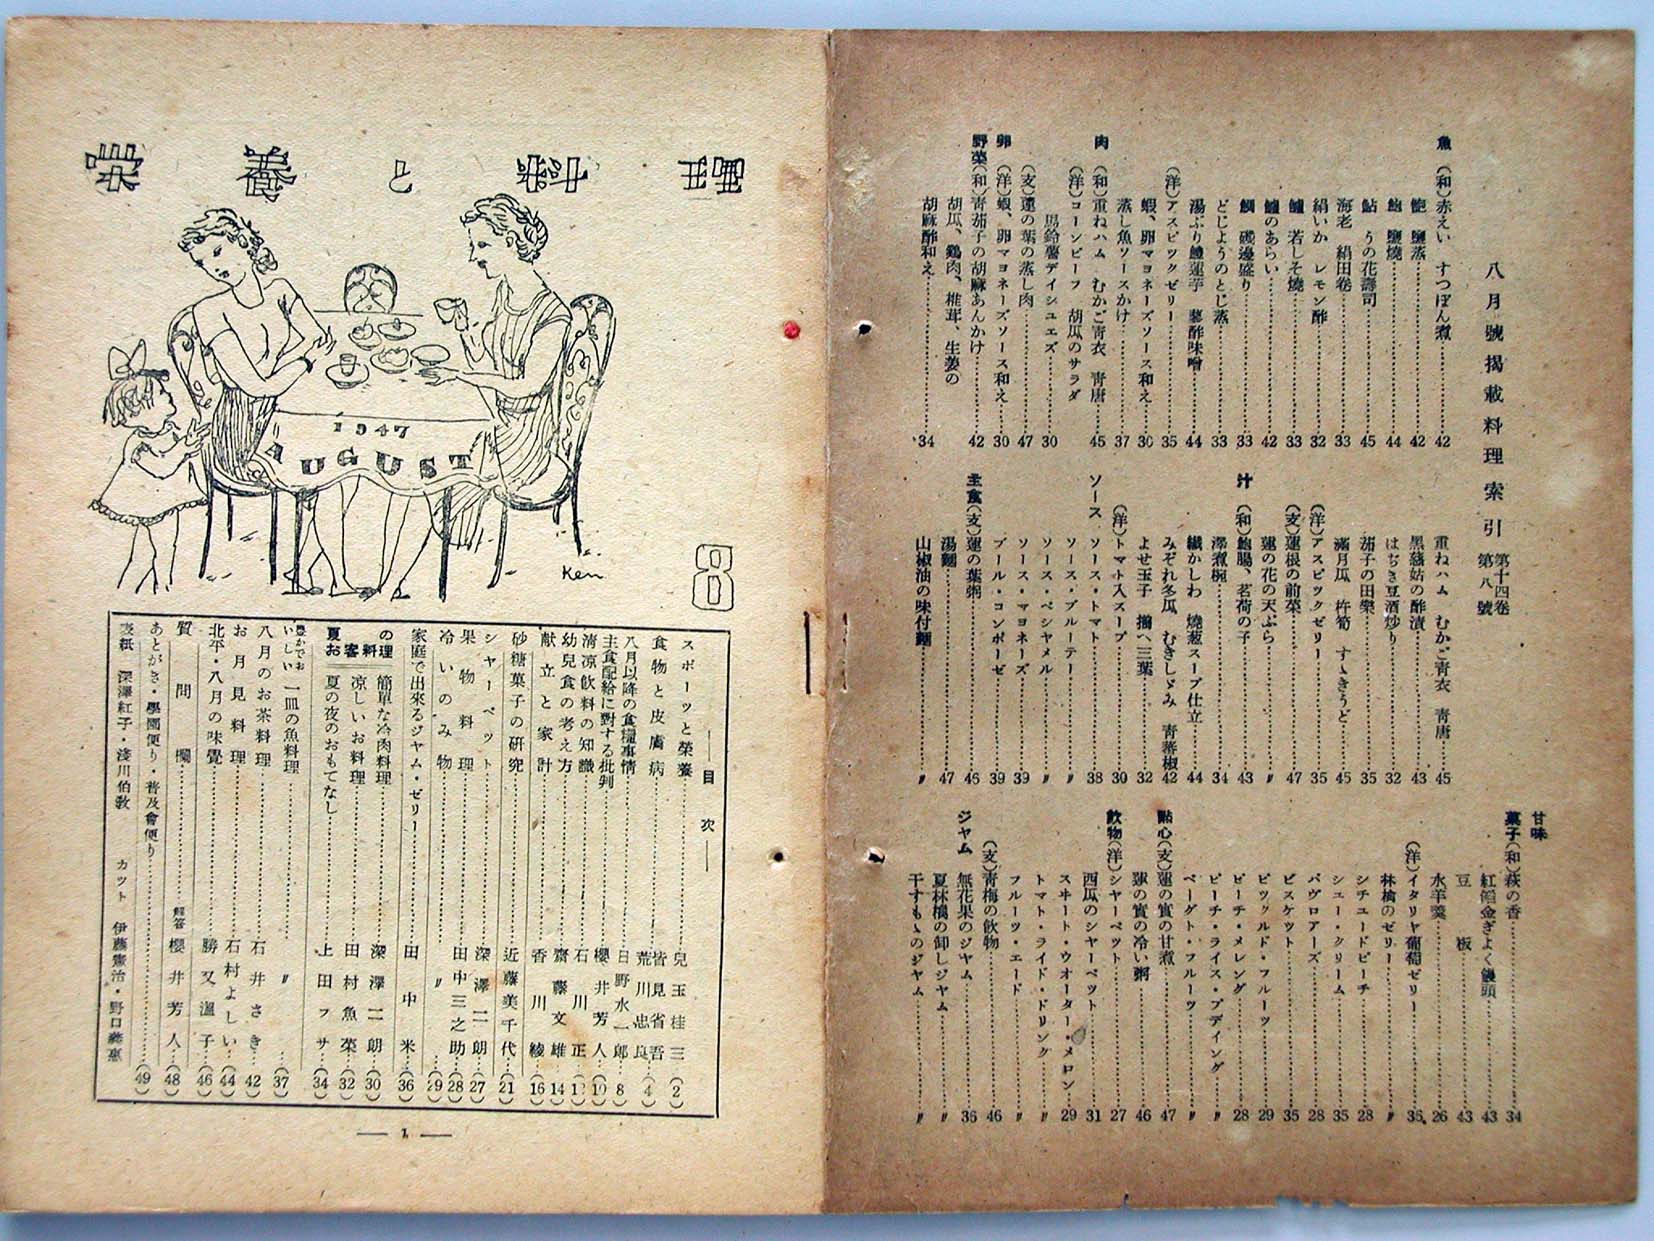 八月號掲載料理索引 第十四卷 第八號
魚 (和)赤えい すつぽん煮 42
鮑 鹽蒸 42
鮑 鹽燒 44
鮎 うの花壽司 45
海老 絹田卷 33
絹いか レモン酢 32
鱸 若しそ燒 33
鱸のあらい 42
鯛 磯邊盛り 33
どじようのとじ蒸 33
湯ぶり鱧蓮芋 蓼酢味噌 44
(洋)アスピックゼリー 35
蝦、卵マヨネーズソース和え 30
蒸し魚ソースかけ 37
肉 (和)重ねハム むかご青衣 青唐 45
(洋)コーンビーフ 胡瓜のサラダ
馬鈴薯デイシユエズ 30
(支)蓮の葉の蒸し肉 47
卵 (洋)蝦、卵マヨネーズソース和え 30
野菜(和)青茄子の胡麻あんかけ 42
胡瓜、鷄肉、椎茸、生姜の
胡麻酢和え 34
重ねハム むかご青衣 青唐 45
黑慈姑の酢漬 43
はぢき豆酒炒り 32
茄子の田樂 35
滿月瓜 杵筍 すゝきうど 45
(洋)アスピックゼリー 35
(支)蓮根の前菜 47
蓮の花の天ぷら 〃
汁 (和)鮑腸、茗荷の子 43
澤煮椀 34
繊かしわ 燒葱スープ仕立 44
みぞれ冬瓜 むきしゞみ 青蕃椒 42
よせ玉子 搦へ三葉 32
(洋)トマト入スープ 30
ソース ソース・トマト 38
ソース・ブルーテー 〃
ソース・ベシヤメル 〃
ソース・マヨネーズ 39
ブール・コンポーゼ 39
主食(支)蓮の葉粥 46
湯麵 47
山椒油の味付麵 〃
甘味
菓子(和)萩の香 34
紅餡金ぎよく饅頭 43
豆板 43
水羊羹 26
(洋)イタリヤ葡萄ゼリー 35
林檎のゼリー 〃
シチユードピーチ 28
シユー・クリーム 35
バヴロアーズ 28
ビスケツト 35
ピツクルド・フルーツ 29
ピーチ・メレング 28
ピーチ・ライス・プデイング 〃
ベーグト・フルーツ 〃
點心(支)蓮の實の甘煮 47
蓮の實の冷い粥 46
飲物(洋)シヤーベツト 27
西瓜のシヤーベツト 31
スヰート・ウオーター・メロン 29
トマト・ライド・ドリンク 〃
フルーツ・エード 〃
(支)青梅の飲物 46
ジヤム 無花果のジヤム 36
夏林檎の卸しジヤム 〃
干すもゝのジヤム 〃
栄養と料理
1947
AUGUST
Ken
8
目次
スポーツと榮養 兒玉桂三 (2)
食物と皮膚病 皆見省吾 荒川忠良 (4)
八月以降の食糧事情 日野水一郎 8
主食配給に對する批判 櫻井芳人 (10)
清凉飲料の知識 石川正
幼兒食の考え方 齋藤文雄 14
献立と家計 香川綾 (16)
砂糖菓子の研究 近藤美千代 (21)
シヤーベツト 深澤二朗 (27)
果物料理 田中三之助 (28)
冷いのみ物 〃 (29)
家庭で出來るジヤム・ゼリー 田中米 (36)
夏のお客料理
簡單な冷肉料理 深澤二朗 (30)
涼しいお料理 田村魚菜 (32)
夏の夜のおもてなし 上田フサ (34)
豊かでおいしい 一皿の魚料理 〃 (37)
八月のお茶料理 石井さき 42
お月見料理 石村よしい (44)
北平・八月の味覺 勝又溫子 (46)
質問欄 解答 櫻井芳人 (48)
あとがき・學園便り・普及會便り (49)
表紙 深澤紅子・淺川伯敎 カツト 伊藤憲治・野口義惠
1